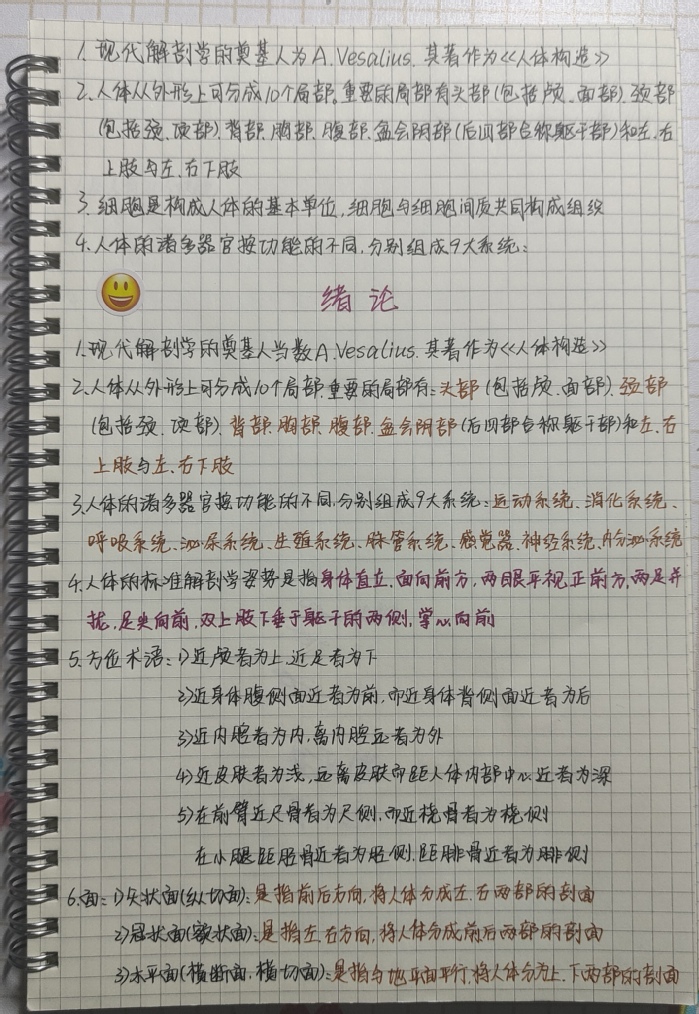 1. 现代解剖学的奠基人为A.Vesalius.其著作为<<人体构造>>
2.人体从外形上可分成10个局部。重要的局部有头部(包括颅、面部)、颈部
(包括颈、项部)、背部、胸部、腹部、盆会阴部(后四部合称躯干部)和左、右
上肢与左、右下肢
3. 细胞是构成人体的基本单位,细胞与细胞间质共同构成组织
4.人体的诸多器官按功能的不同,分别组成9大系统:
绪论
1.现代解剖学的奠基人当数A.Vesalius.其著作为<<人体构造>>
2.人体从外形上可分成10个局部,重要的局部有:头部(包括颅、面部)、颈部
(包括颈、项部)、背部、胸部、腹部、盆会阴部(后四部合称躯干部)和左、右
上肢与左、右下肢
3.人体的诸多器官按功能的不同,分别组成9大系统:运动系统、消化系统、
呼吸系统、泌尿系统、生殖系统、脉管系统、感觉器、神经系统、内分泌系统
4.人体的标准解剖学姿势是指身体直立,面向前方,两眼平视正前方,两足并
拢,足尖向前,双上肢下垂于躯干的两侧,掌心向前
5.方位术语:1)近颅者为上,近足者为下
2)近身体腹侧面近者为前,而近身体背侧面近者为后
3)近内腔者为内,离内腔远者为外
4)近皮肤者为浅,远离皮肤而距人体内部中心近者为深
5)在前臂近尺骨者为尺侧,而近桡骨者为桡侧
在小腿距胫骨近者为胫侧,距腓骨近者为腓侧
6.面:1)矢状面(纵切面):是指前后方向,将人体分成左、右两部的剖面
2)冠状面(额状面):是指左、右方向,将人体分成前后两部的剖面
3)水平面(横断面,横切面):是指与地平面平行,将人体分为上、下两部的剖面